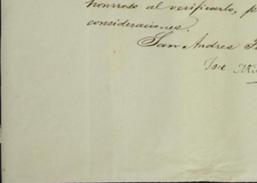 honroso al verificarlo, 
consideraciones.
San Andres